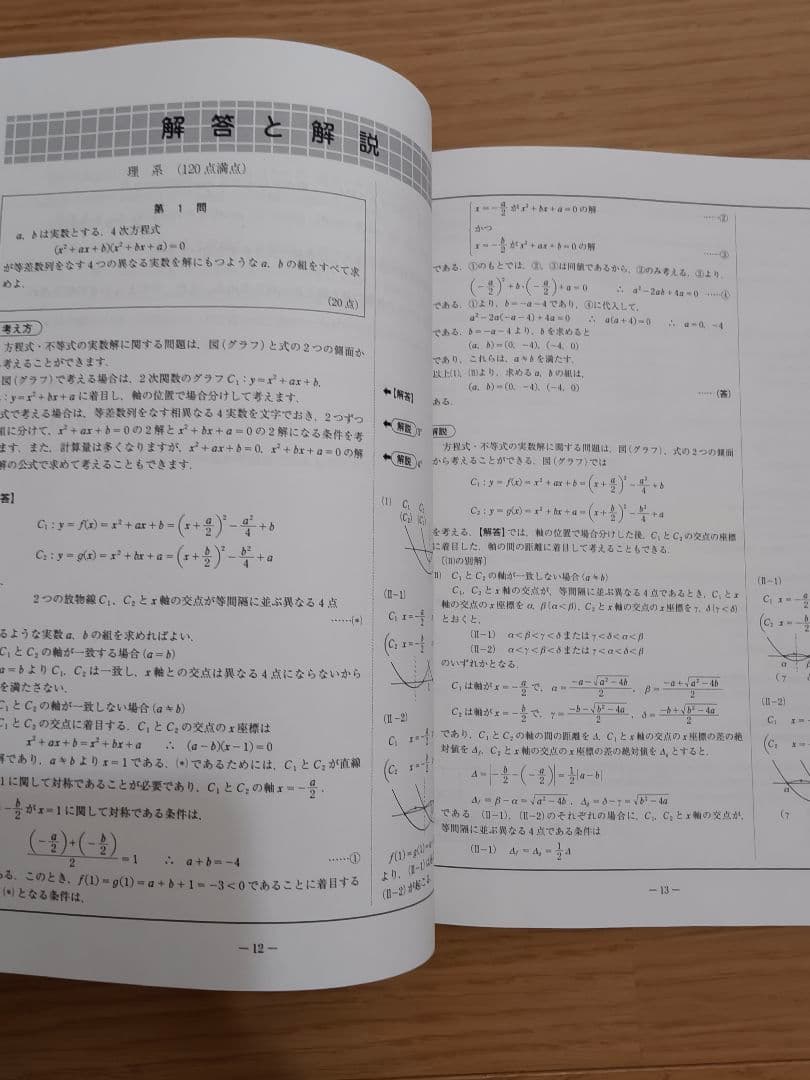 解答と解説
理 系 (120点満点)
第 1 問
a, bは実数とする. 4次方程式
(x²+ax+b)(x²+bx+a)=0
が等差数列をなす4つの異なる実数を解にもつようなa, bの組をすべて求
めよ.
(20点)
考え方
方程式・不等式の実数解に関する問題は, 図(グラフ)と式の2つの側面か
考えることができます.
図(グラフ)で考える場合は, 2次関数のグラフC₁:y=x²+ax+b,
:y=x²+bx+aに着目し, 軸の位置で場合分けして考えます.
式で考える場合は, 等差数列をなす相異なる4実数を文字でおき, 2つずつ
組に分けて, x²+ax+b=0の2解とx²+bx+a=0の2解になる条件を考
ます. また, 計算量は多くなりますが, x²+ax+b=0, x²+bx+a=0の解
解の公式で求めて考えることもできます.
【解答】
解説
解説
答】
C₁:y=f(x)=x²+ax+b=(x+a/2)²-a²/4+b
C₂:y=g(x)=x²+bx+a=(x+b/2)²-b²/4+a
2つの放物線C₁, C₂とx軸の交点が等間隔に並ぶ異なる4点
……(*)
るような実数a, bの組を求めればよい.
C₁とC₂の軸が一致する場合(a=b)
a=bよりC₁, C₂は一致し, x軸との交点は異なる4点にならないから
を満たさない.
C₁とC₂の軸が一致しない場合(a≠b)
C₁とC₂の交点に着目する. C₁とC₂の交点のx座標は
x²+ax+b=x²+bx+a ∴ (a-b)(x-1)=0
解であり, a≠bよりx=1である. (*)であるためには, C₁とC₂が直線
1に関して対称であることが必要であり, C₁とC₂の軸x=-a/2,
-b/2がx=1に関して対称である条件は,
((-a/2)+(-b/2))/2=1 ∴ a+b=-4 ……①
る. このとき, f(1)=g(1)=a+b+1=-3<0であることに着目する
(*)となる条件は,
(I)
C₁ C₁
(C₂) (C₂)
(II-1)
C₁ x=-a/2
(C₂ x=-b/2
(II-2)
C₁ x=-
(C₂ x=-
f(1)=g(1)=
より, (II-1)
(II-2)が起こ
-12-
x=-a/2がx²+bx+a=0の解 ……②
かつ
x=-b/2がx²+ax+b=0の解 ……③
である. ①のもとでは, ②, ③は同値であるから, ②のみ考える. ②より,
(-a/2)²+b·(-a/2)+a=0 ∴ a²-2ab+4a=0 ……④
である. ①より, b=-a-4であり, ④に代入して,
a²-2a(-a-4)+4a=0 ∴ a(a+4)=0 ∴ a=0, -4
である. b=-a-4より, bを求めると
(a, b)=(0, -4), (-4, 0)
であり, これらは, a≠bを満たす.
以上(I), (II)より, 求めるa, bの組は,
(a, b)=(0, -4), (-4, 0) ……(答)
ある.
解説
方程式・不等式の実数解に関する問題は, 図(グラフ), 式の2つの側面
から考えることができる. 図(グラフ)では
C₁:y=f(x)=x²+ax+b=(x+a/2)²-a²/4+b
C₂:y=g(x)=x²+bx+a=(x+b/2)²-b²/4+a
を考える. 【解答】では, 軸の位置で場合分けした後, C₁とC₂の交点の座標
に着目した. 軸の間の距離に着目して考えることもできる.
〔(II)の別解〕
II) C₁とC₂の軸が一致しない場合(a≠b)
C₁, C₂とx軸の交点が, 等間隔に並ぶ異なる4点であるとき, C₁とx
軸の交点のx座標をα, β(α<β), C₂とx軸の交点のx座標をγ, δ(γ<δ)
とおくと,
(II-1) α<β<γ<δまたはγ<δ<α<β
(II-2) α<γ<β<δまたはγ<α<δ<β
のいずれかとなる.
C₁は軸がx=-a/2で, α=(-a-√(a²-4b))/2, β=(-a+√(a²-4b))/2
C₂は軸がx=-b/2で, γ=(-b-√(b²-4a))/2, δ=(-b+√(b²-4a))/2
であり, C₁とC₂の軸の間の距離をΔ, C₁とx軸の交点のx座標の差の絶
対値をΔf, C₂とx軸の交点のx座標の差の絶対値をΔgとすると,
Δ=|-b/2-(-a/2)|=1/2|a-b|
Δf=β-α=√(a²-4b), Δg=δ-γ=√(b²-4a)
である. (II-1), (II-2)のそれぞれの場合に, C₁, C₂とx軸の交点が,
等間隔に並ぶ異なる4点である条件は
(II-1) Δf=Δg=1/2Δ
(II-1)
C₁ x=-a/2
(C₂ x=-b/2
α β
(γ
(II-2)
C₁ x=-
(C₂ x=-
α
(γ
-13-